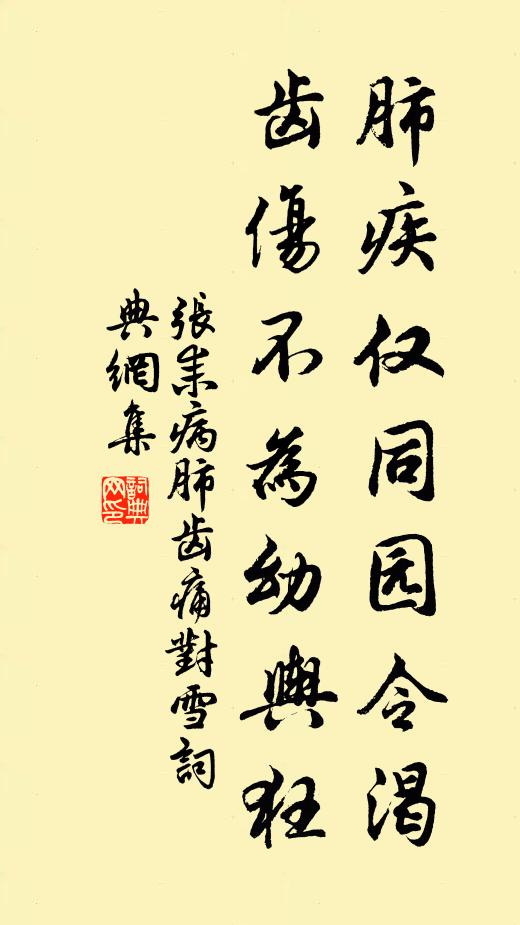 肺疾仅同园令渴
齿傷不為幼輿狂
張耒病肺齒痛對雪詞
典網集
詞典网印